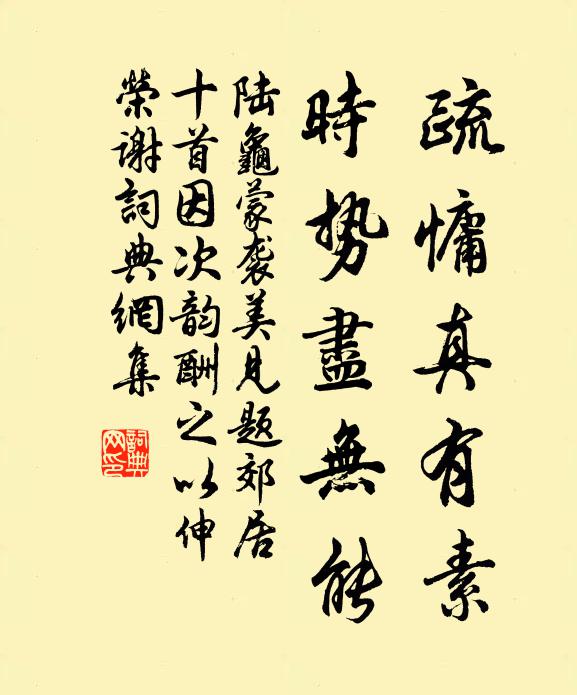 疏慵真有素
時势盡無能
陆龜蒙袭美見题郊居
十首因次韵酬之以伸
榮谢詞典網集
詞典网印